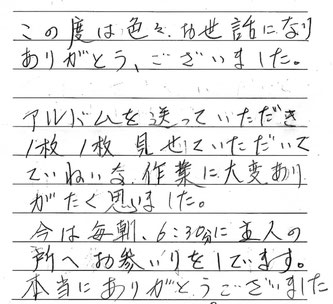 この度は色々お世話になり
ありがとう、ございました。
アルバムを送っていただき
1枚1枚見せていただいて
ていねいな作業に大変あり
がたく思いました。
今は毎朝、6:30分に主人の
所へお参いりをしてます。
本当にありがとうございました